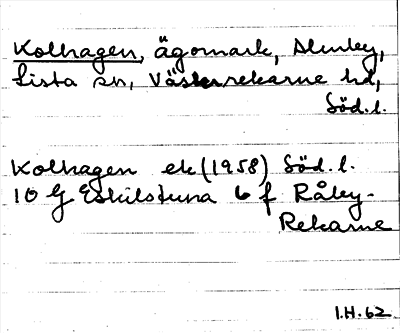 Kolhagen, ägomark, Ålmby,
Lista sn, Västerrekarne hd,
Söd.l.
Kolhagen ek (1958) Söd.l.
10 G Eskilstuna 6 f Råby-
Rekarne
I.H. 62